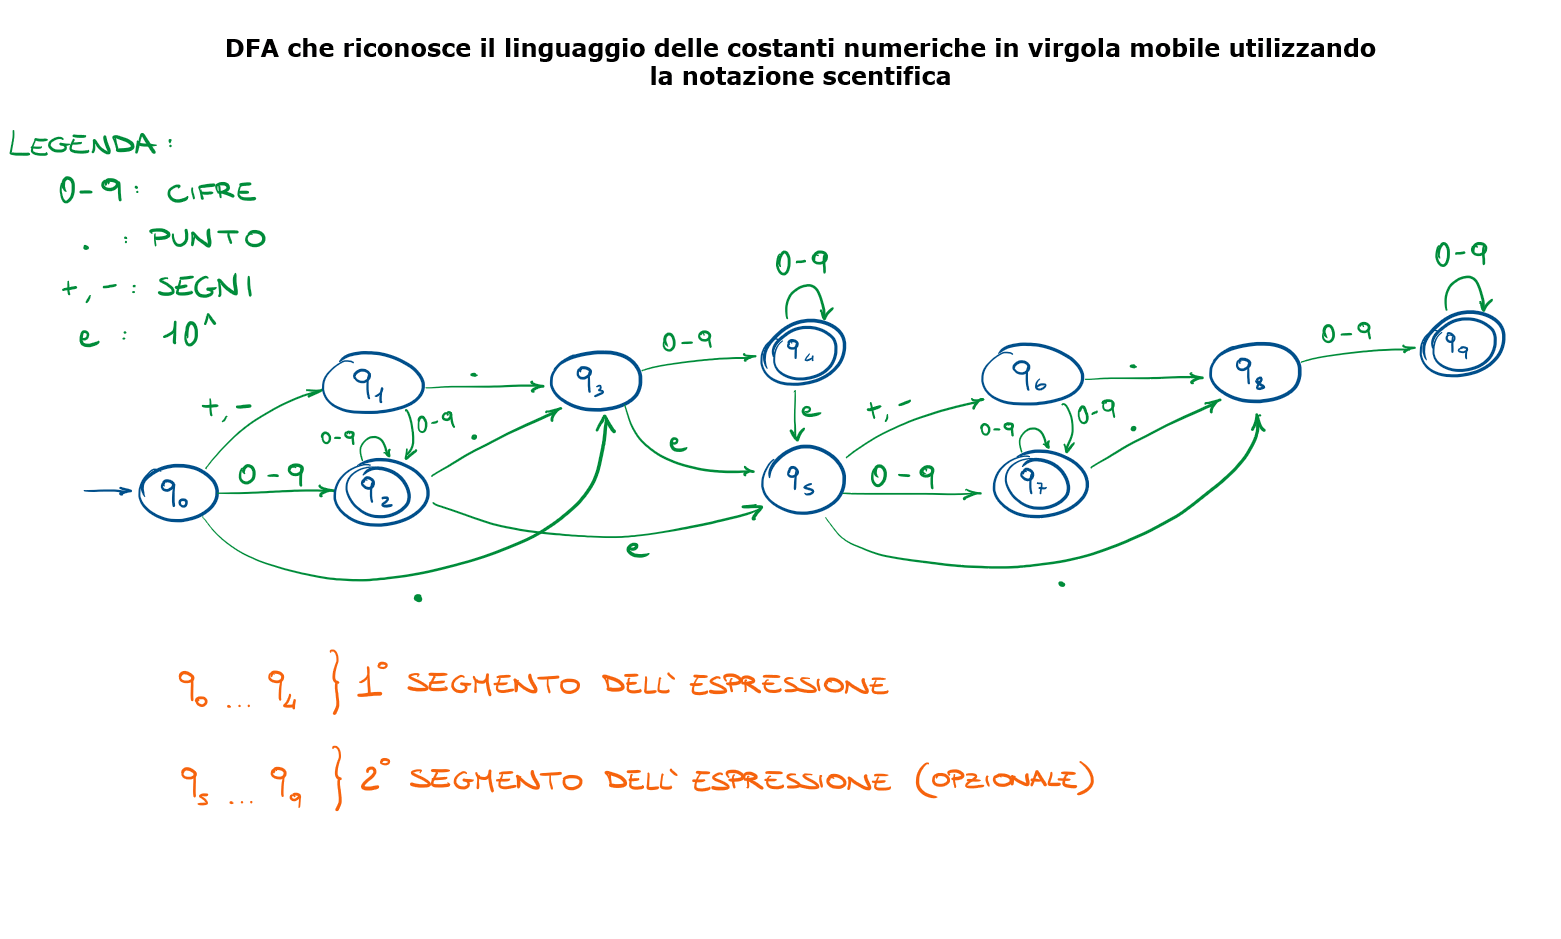 DFA che riconosce il linguaggio delle costanti numeriche in virgola mobile utilizzando
la notazione scientifica
LEGENDA:
0-9: CIFRE
. : PUNTO
+,-: SEGNI
e : 10^
0-9
0-9
q4
0-9
q9
0-9
q1
.
q3
0-9
e
q6
.
q8
+,-
0-9
0-9
.
e
+,-
0-9
0-9
.
q0
0-9
q2
q5
0-9
q7
e
.
.
q0 ... q4 } 1° SEGMENTO DELL'ESPRESSIONE
q5 ... q9 } 2° SEGMENTO DELL'ESPRESSIONE (OPZIONALE)